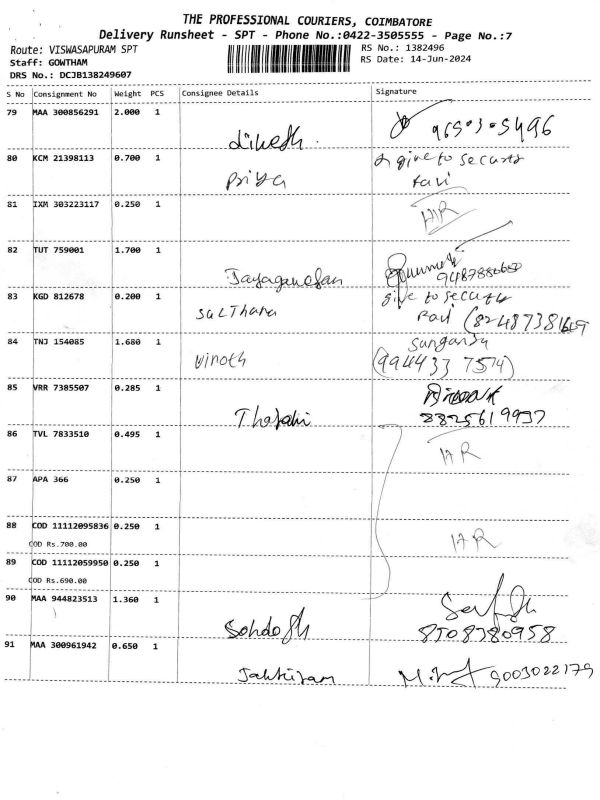 THE PROFESSIONAL COURIERS, COIMBATORE
Delivery Runsheet - SPT - Phone No.:0422-3505555 - Page No.:7
Route: VISWASAPURAM SPT
RS No.: 1382496
Staff: GOWTHAM
RS Date: 14-Jun-2024
DRS No.: DCJB138249607
S No Consignment No Weight PCS Consignee Details Signature
79 MAA 300856291 2.000 1
Dinesh.
80 KCM 21398113 0.700 1 give to security
Priya ravi
81 IXM 303223117 0.250 1
82 TUT 759001 1.700 1
Jayaganesan
83 KGD 812678 0.200 1 give to security
Ravi
84 TNJ 154085 1.680 1
Vinoth (994433 7574)
85 VRR 7385507 0.285 1
8825619937
86 TVL 7833510 0.495 1
87 APA 366 0.250 1
88 COD 11112095836 0.250 1
COD Rs.700.00
89 COD 11112059950 0.250 1
COD Rs.690.00
90 MAA 944823513 1.360 1
8508780958
91 MAA 300961942 0.650 1
9003022179